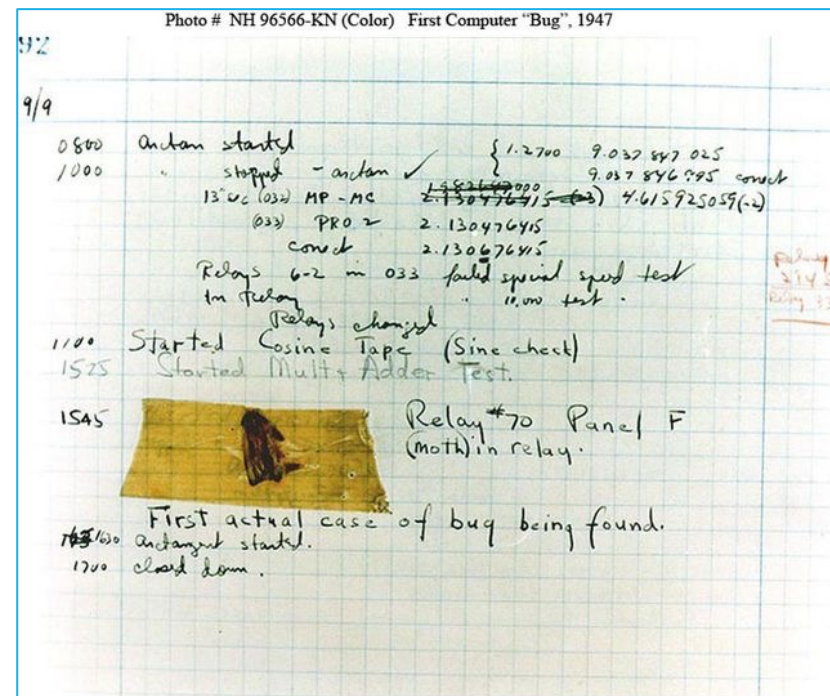 Photo # NH 96566-KN (Color) First Computer “Bug”, 1947
92
9/9
0800 arctan started { 1.2700 9.037 847 025
1000 " stopped - arctan ✓ 9.037 846 995 correct
(032) MP - MC 2.130476415 4.615925059(-2)
(033) PRO 2 2.130476415
correct 2.130676415
Relays 6-2 in 033 failed special speed test
In Relay " 10.000 test .
Relays changed
1100 Started Cosine Tape (Sine check)
1525 Started Mult + Adder Test.
1545 Relay #70 Panel F
(moth) in relay.
First actual case of bug being found.
1630 arctangent started.
1700 closed down .